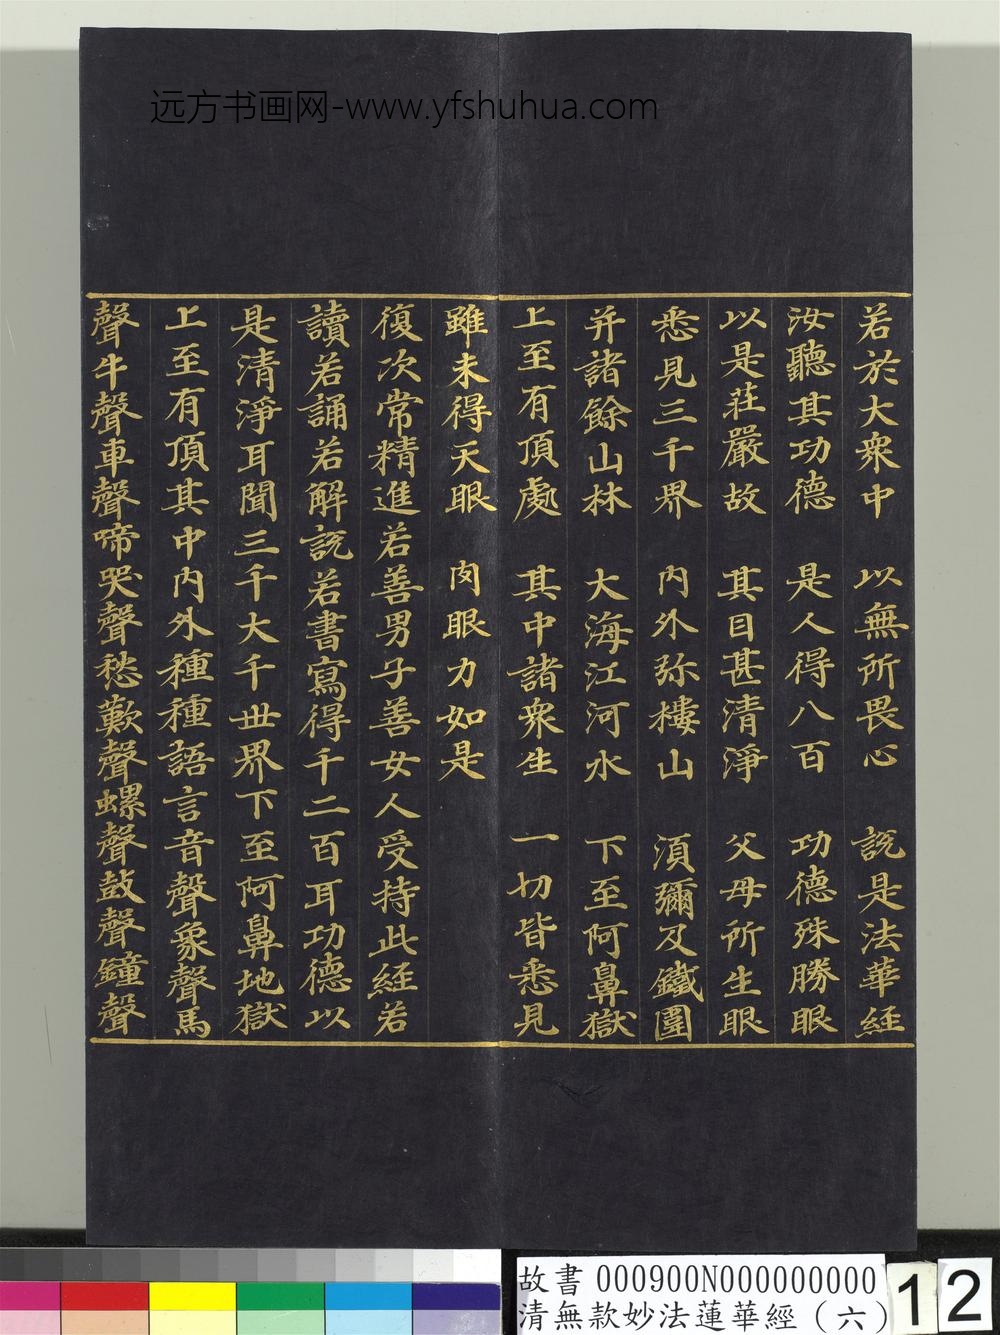 远方书画网-www.yfshuhua.com
若於大衆中 以無所畏心 說是法華經
汝聽其功德 是人得八百 功德殊勝眼
以是莊嚴故 其目甚清淨 父母所生眼
悉見三千界 内外弥樓山 湏彌及鐵圍
并諸餘山林 大海江河水 下至阿鼻獄
上至有頂處 其中諸衆生 一切皆悉見
雖未得天眼 肉眼力如是
復次常精進若善男子善女人受持此經若
讀若誦若解說若書寫得千二百耳功德以
是清淨耳聞三千大千世界下至阿鼻地獄
上至有頂其中内外種種語言音聲象聲馬
聲牛聲車聲啼哭聲愁歎聲螺聲鼓聲鐘聲
故書 000900N000000000
清無款妙法蓮華經（六）
12